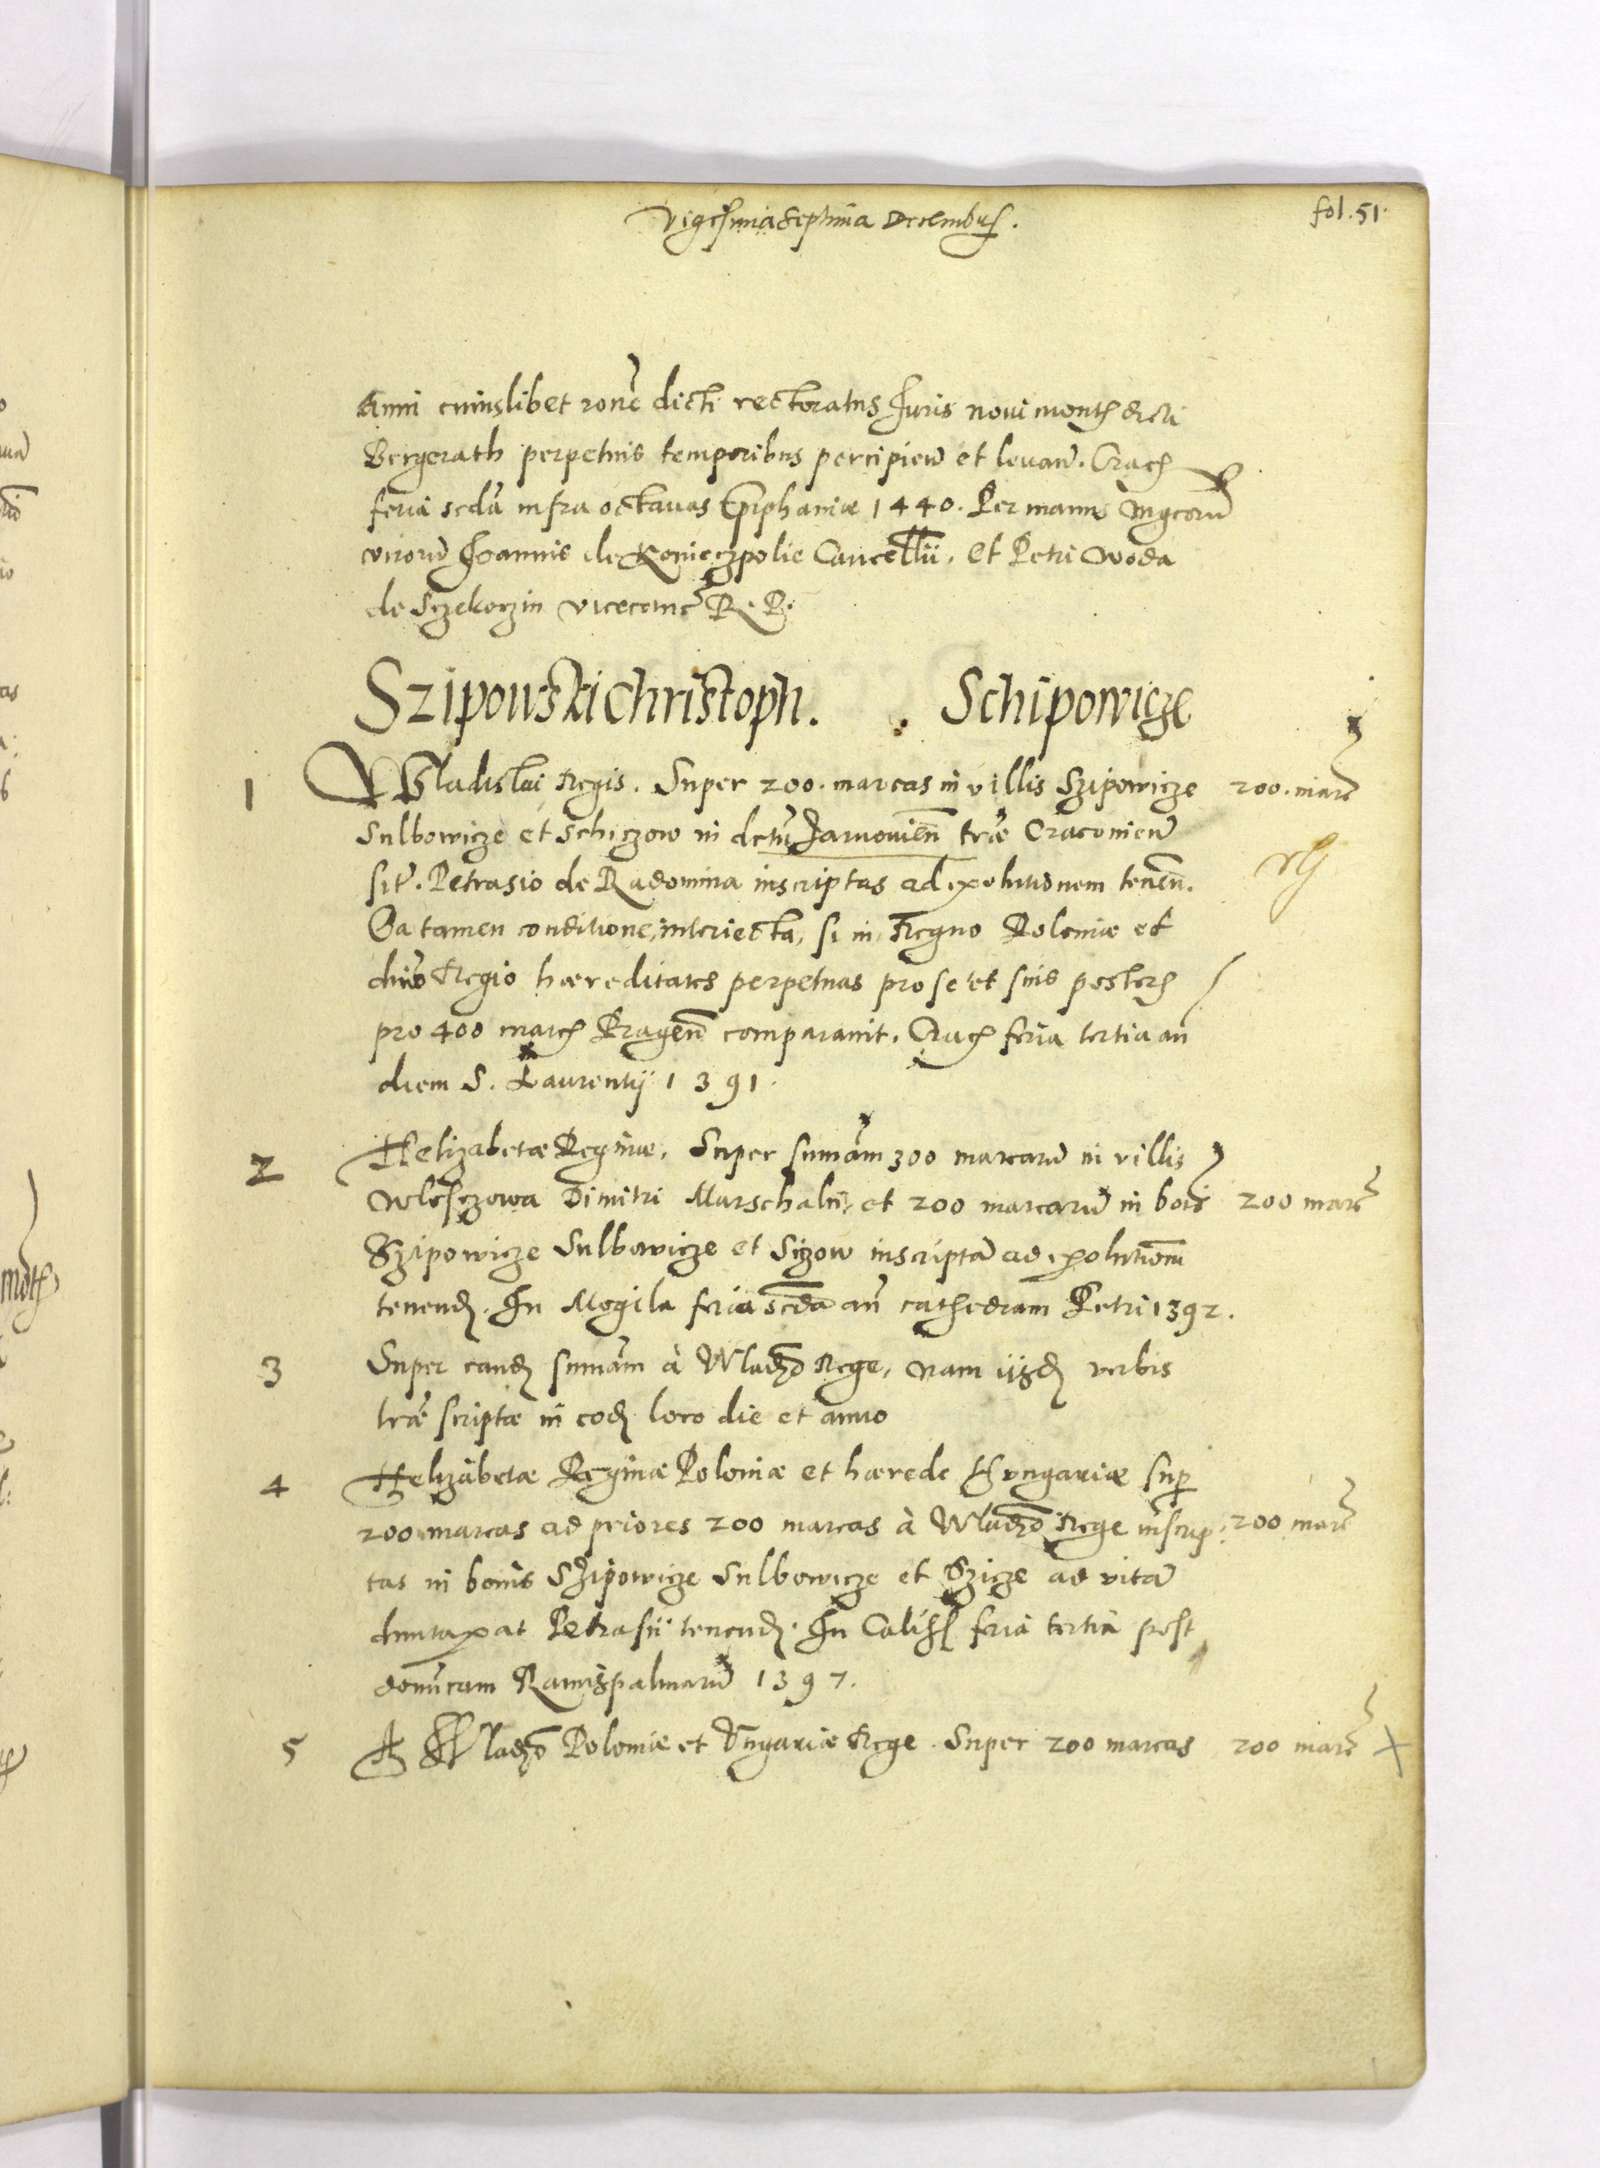 Vigesima Septima Decembris.
fol. 51.
Anni cuiuslibet ronē dicti rectoratus Juris noui montis dicti
Bergerath perpetuis temporibus percipien̄ et leuan̄. Crac.
feria scdā infra octauas Epiphaniæ 1440. Per manus Mgcorū
virorū Joannis de Konieczpolie Cancellii, et Petri Woda
de Sczekoczin vicecanc̄ R. P.
Szipowski Christoph. . Schipowicze
1 Wladislai Regis. Super 200. marcas in villis Szipowicze 200. marc̄
Sulbowicze et Schiczow in detū Jarnouien̄ træ Cracouien̄
sit̄. Petrasio de Radomina inscriptas ad exolutionem tenen̄.
Ea tamen conditione, interiecta, si in Regno Poloniæ et
dnio Regio hæreditates perpetuas pro se et suis poster.
pro 400 marc. Pragen̄ comparauit. Crac. feria tertia an̄
diem S. Laurentij 1391.
2 Helizabetæ Reginæ. Super sumām 300 marcarū in villis
Wlosczowa Dimitri Marschalci, et 200 marcarū in bois 200 marc̄
Szipowicze Sulbowicze et Siczow inscriptā ad exolutionem
tenend. In Mogila feria scdā an̄ cathedram Petri 1392.
3 Super eand. sumām à Wladō Rege, nam ijsd. verbis
træ scriptæ in eod. loco die et anno
4 Helizabetæ Reginæ Poloniæ et hærede Hungariæ sup
200 marcas ad priores 200 marcas à Wladō Rege inscrip: 200 marc̄
tas in bonis Szipowicze Sulbowicze et Szicze ad vitā
duntaxat Petrasii tenend. In Calis. feria tertia post
domīcam Ramispalmarū 1397.
5 A Wladō Poloniæ et Vngariæ Rege. Super 200 marcas 200 marc̄